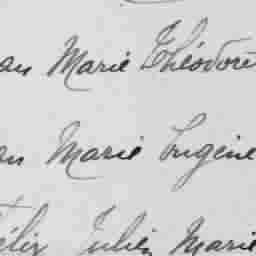 an Marie Théodore
an Marie Eugène
Félix Julien Marie